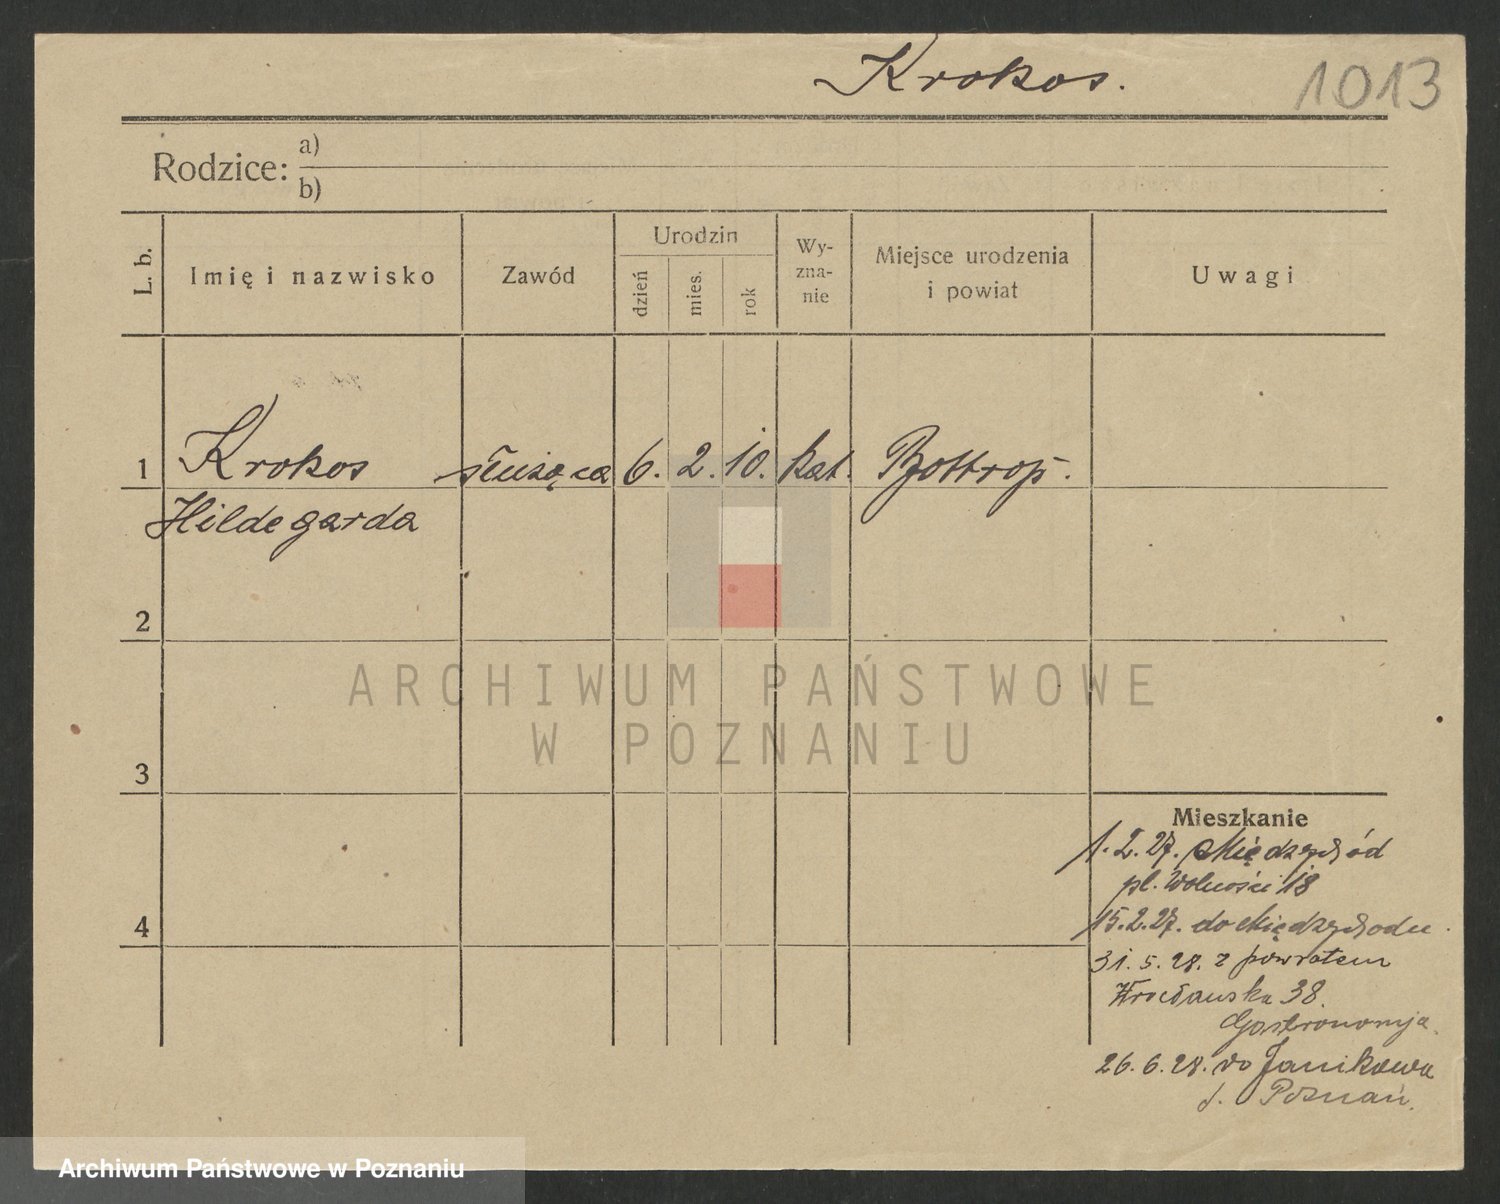 Krokos.
1013
Rodzice: a)
b)
L. b.
Imię i nazwisko
Zawód
Urodzin
dzień
mies.
rok
Wy-
zna-
nie
Miejsce urodzenia
i powiat
Uwagi
1 Krokos służąca 6. 2. 10. kat. Bottrop.
Hildegarda
2
ARCHIWUM PAŃSTWOWE
W POZNANIU
3
4
Mieszkanie
1.2.27. Międzychód
pl. Wolności 18
15.2.27. do Międzychodu
31.5.28. z powrotem
Wrocławska 38.
Gastronomja.
26.6.28. do Janikowa
Poznań.
Archiwum Państwowe w Poznaniu